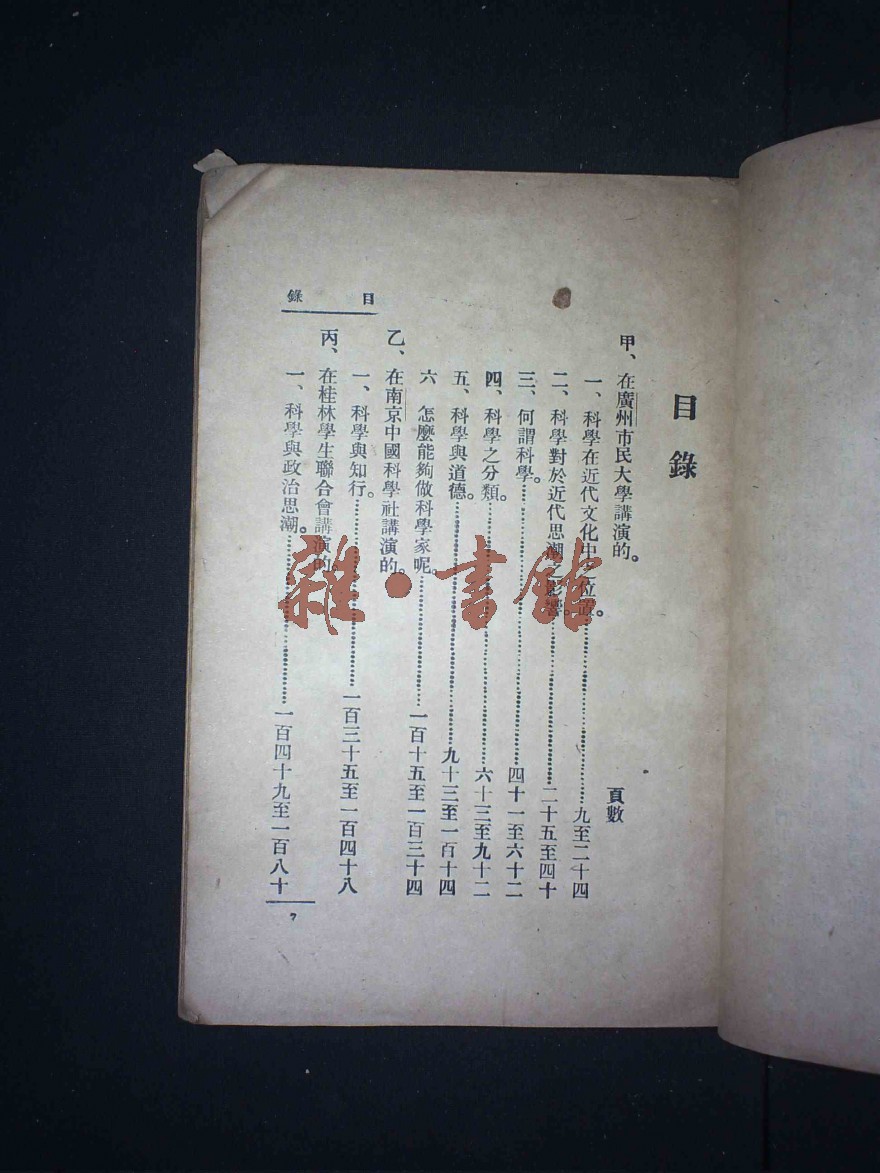 目錄
頁數
甲、在廣州市民大學講演的。
一、科學在近代文化中之位置。……九至二十四
二、科學對於近代思潮之影響。……二十五至四十
三、何謂科學。……四十一至六十二
四、科學之分類。……六十三至九十二
五、科學與道德。……九十三至一百十四
六 怎麼能夠做科學家呢。……一百十五至一百三十四
乙、在南京中國科學社講演的。
一、科學與知行。……一百三十五至一百四十八
丙、在桂林學生聯合會講演的
一、科學與政治思潮。……一百四十九至一百八十
目錄
7
雜·書館